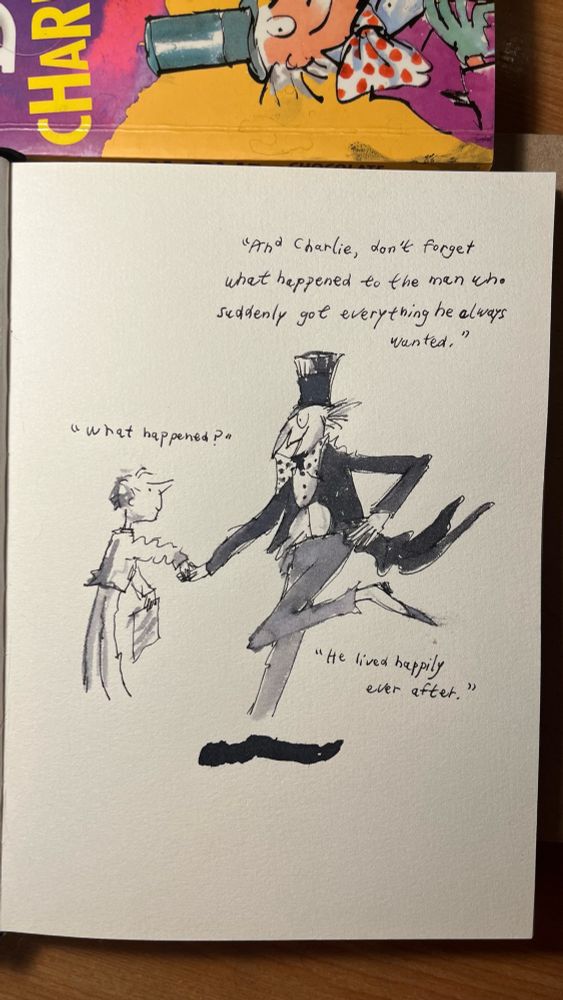 CHAR
CHOCOLATE
"And Charlie, don't forget
what happened to the man who
suddenly got everything he always
wanted."
"What happened?"
"He lived happily
ever after."